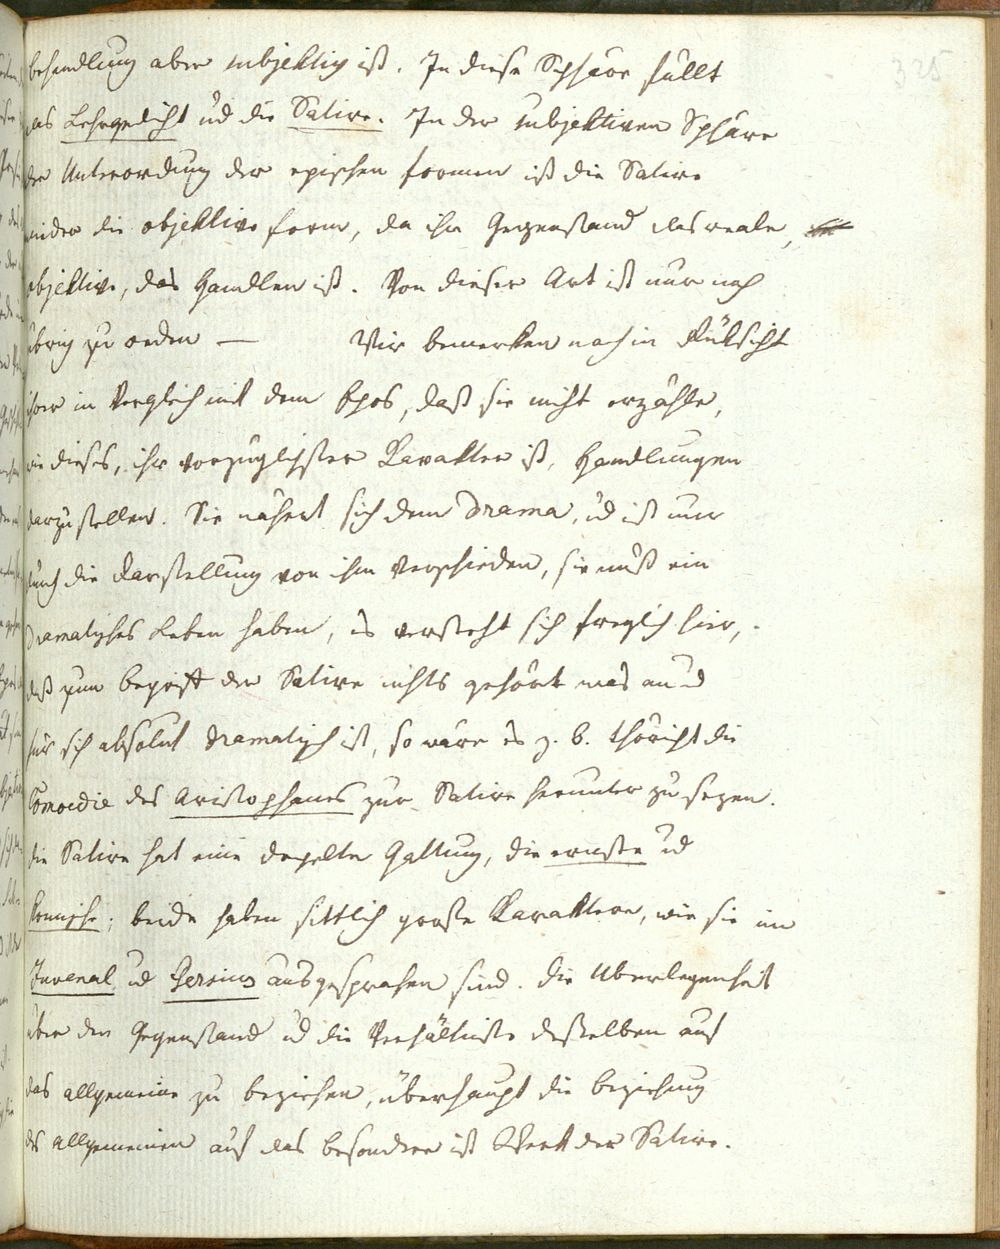 325
behandlung aber subjektiv ist. In diese Sphäre fällt
das Lehrgedicht ud die Satire. In der subjektiven Sphäre
der Unterordung der epischen formen ist die Satire
wieder die objektive form, da ihr Gegenstand das reale,
objektive, das Handlen ist. Von dieser Art ist nur noch
übrig zu reden — Wir bemerken noch in Rüksicht
ihrer in Vergleich mit dem Epos, daß sie nicht erzähle,
wie dieses, ihr vorzüglichster Karakter ist, Handlungen
darzustellen. Sie nähert sich dem Drama, ud ist nur
durch die Darstellung von ihm verschieden, sie muß ein
Dramatisches Leben haben, es versteht sich freylich hier,
daß zum begriff der Satire nichts gehört was an ud
für sich absolut Dramatisch ist, so wäre es z. b. thöricht die
Comoedie des Aristophanes zur Satire herunter zu sezen.
die Satire hat eine doppelte Gattung, die ernste ud
komische; beide haben sittlich große Karaktere, wie sie im
Juvenal ud Persius ausgesprochen sind. die Uberlegenheit
über den Gegenstand ud die Verhältniße desselben auf
das allgemeine zu beziehen, überhaupt die beziehung
des allgemeinen auf das besondere ist Werk der Satire.